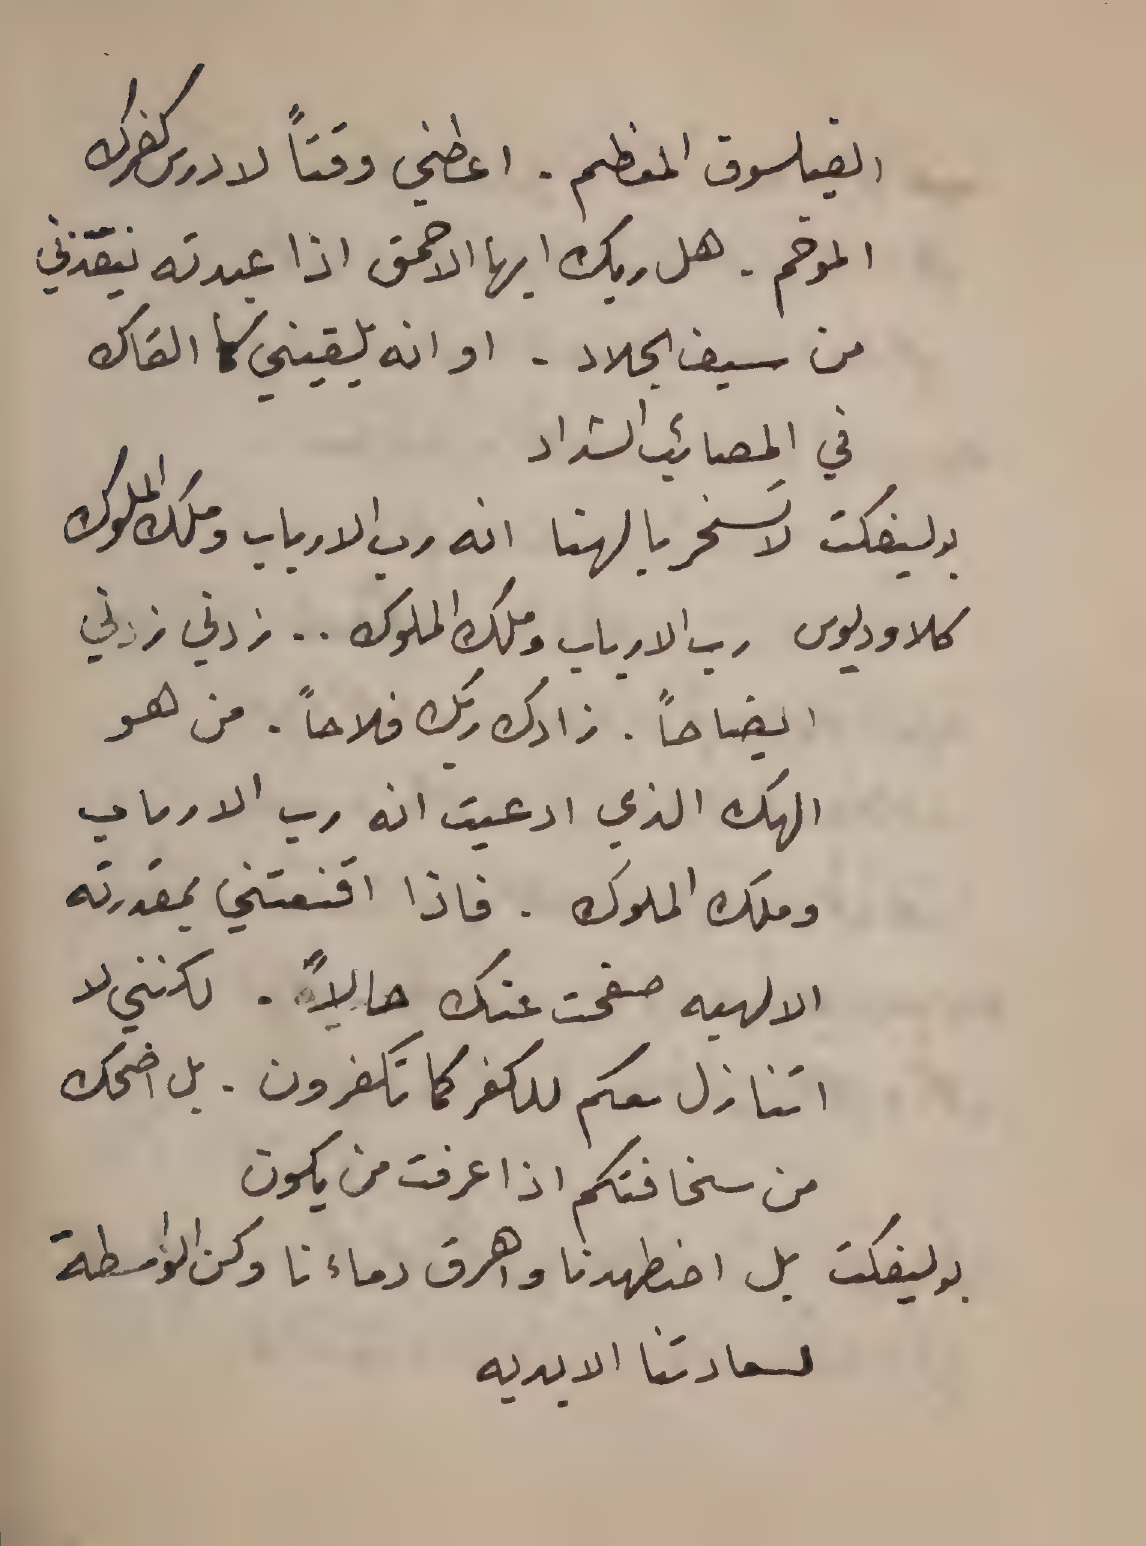 الفيلسوق المعظم . اعطني وقتاً لادرس كفرك
الموخم . هل ربك ايها الاحمق اذا عبدته ينقذني
من سيف الجلاد . او انه يلقيني كما القاك
في المصائب الشداد
بوليفكت لا تسخر بالهنا انه رب الارباب وملك الملوك
كلاوديوس رب الارباب وملك الملوك .. زدني زدني
ايضاحاً . زادك ربك فلاحاً . من هو
الهك الذي ادعيت انه رب الارباب
وملك الملوك . فاذا اقنعتني بمقدرته
الالهيه صفحت عنك حالاً . لكنني لا
اتنازل معكم للكفر كما تكفرون . بل اضحك
من سخافتكم اذا عرفت من يكون
بوليفكت بل اضطهدنا واهرق دماءنا وكن الواسطة
لسعادتنا الابديه